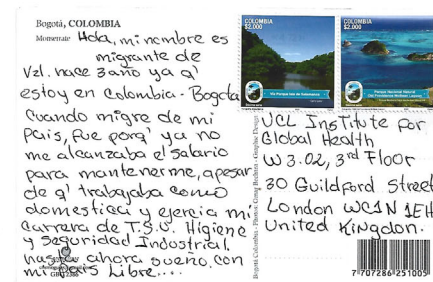 Bogotá, COLOMBIA
Monserrate
Hola, mi nombre es
migrante de
Vzl. hace 3 año ya q'
estoy en Colombia - Bogota
Cuando migre de mi
Pais, fue porq' ya no
me alcanzaba el salario
para mantenerme, apesar
de q' trabajaba como
domestica y ejercia mi
Carrera de T.S.U. Higiene
y Seguridad Industrial,
hasta ahora sueño con
mi País Libre....
COLOMBIA
$2.000
COLOMBIA
$2.000
UCL Institute for
Global Health
W 3.02, 3rd Floor
30 Guildford Street
London WC1N 1EH
United Kingdom.
7707286251005